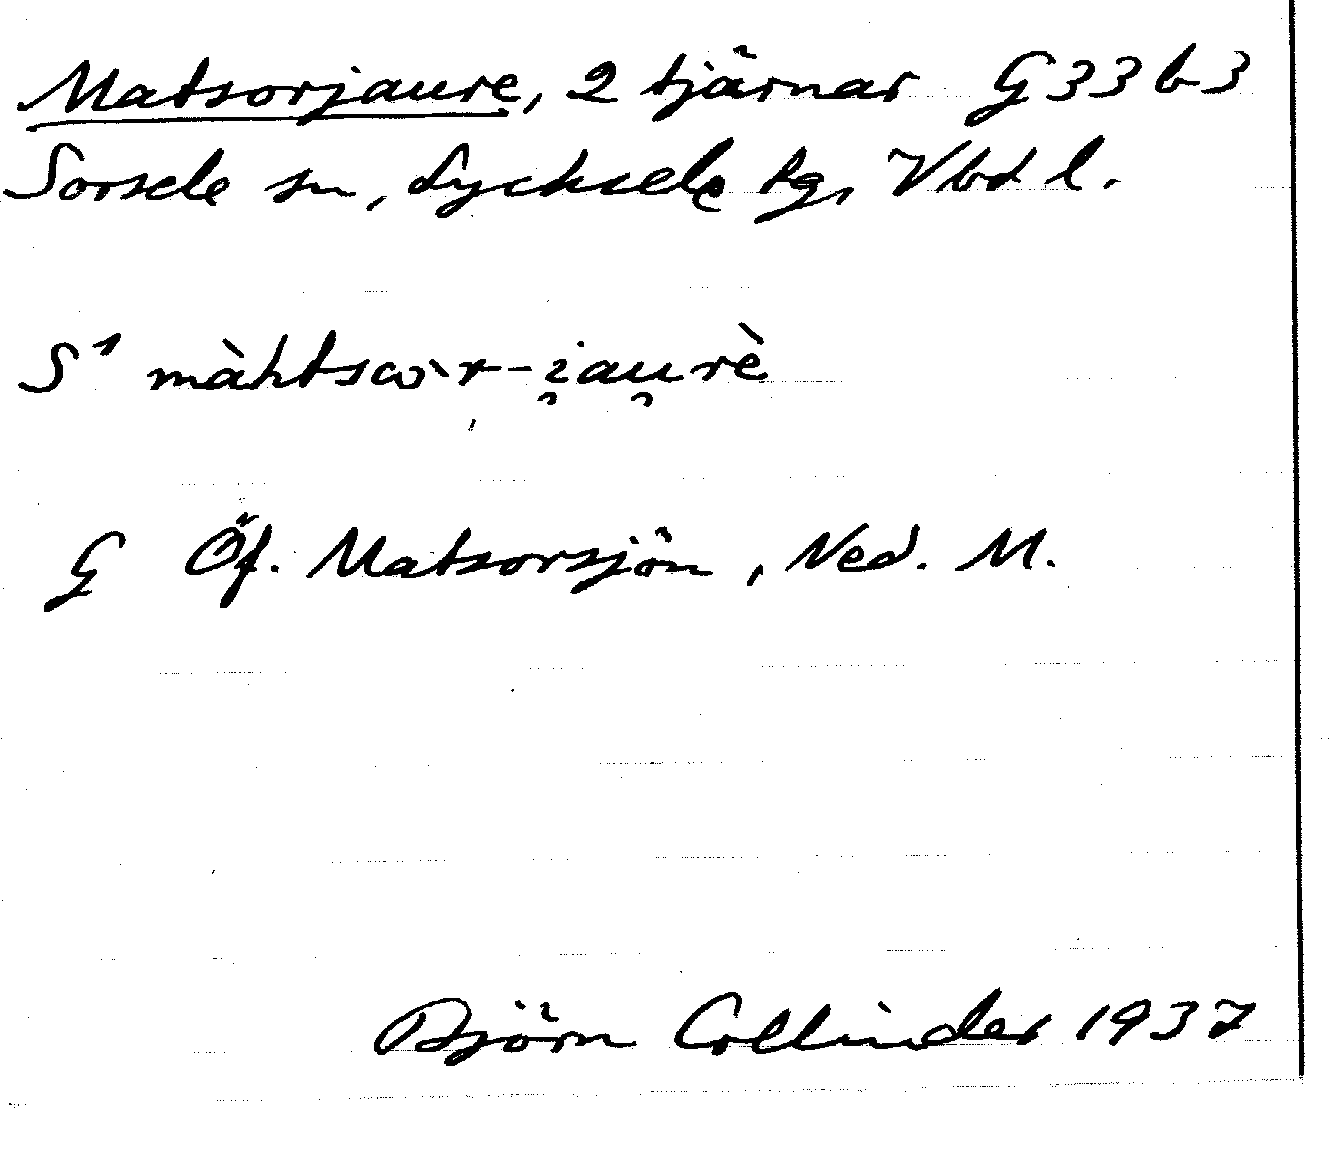 Matsorjaure, 2 tjärnar G 33 b 3
Sorsele sn, Lycksele tg, Vbd l.
S¹ màhtsꞷ̀r-i̯au̯rè
G Öf. Matsorsjön, Ned. M.
Björn Collinder 1937